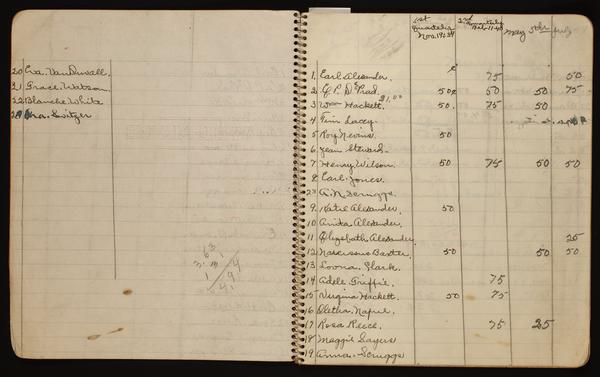 20 Eva. VanDuvall.
21 Grace Watson.
22 Blanche White
Switzer
3.63
1st Quarterly Nov. 19-39
2nd Quarterly Feb-11-40
May 5th
July
1. Earl Alexander. 75 50
2. 50 50 50 75
3. Wm Hackett. $1.00 50. 75 50
4. Tim Lacey.
5. Roy Nevins 50
6. Jean Steward-
7 Henry Wilson. 50 75 50 50
8 Earl. Jones.
A.N. Scruggs.
9. Katie Alexander. 50
10 Anita Alexander.
11 Elizabeth Alexander. 25
12 Narcissus Baxter. 50 50 50
13 Loona. Clark.
14 Adele Griffie. 75
15 Virginia Hackett. 50 75
16 Oletha. Napue.
17 Rosa Reece. 75 25
18 Maggie Sayers
19 Anna. Scruggs